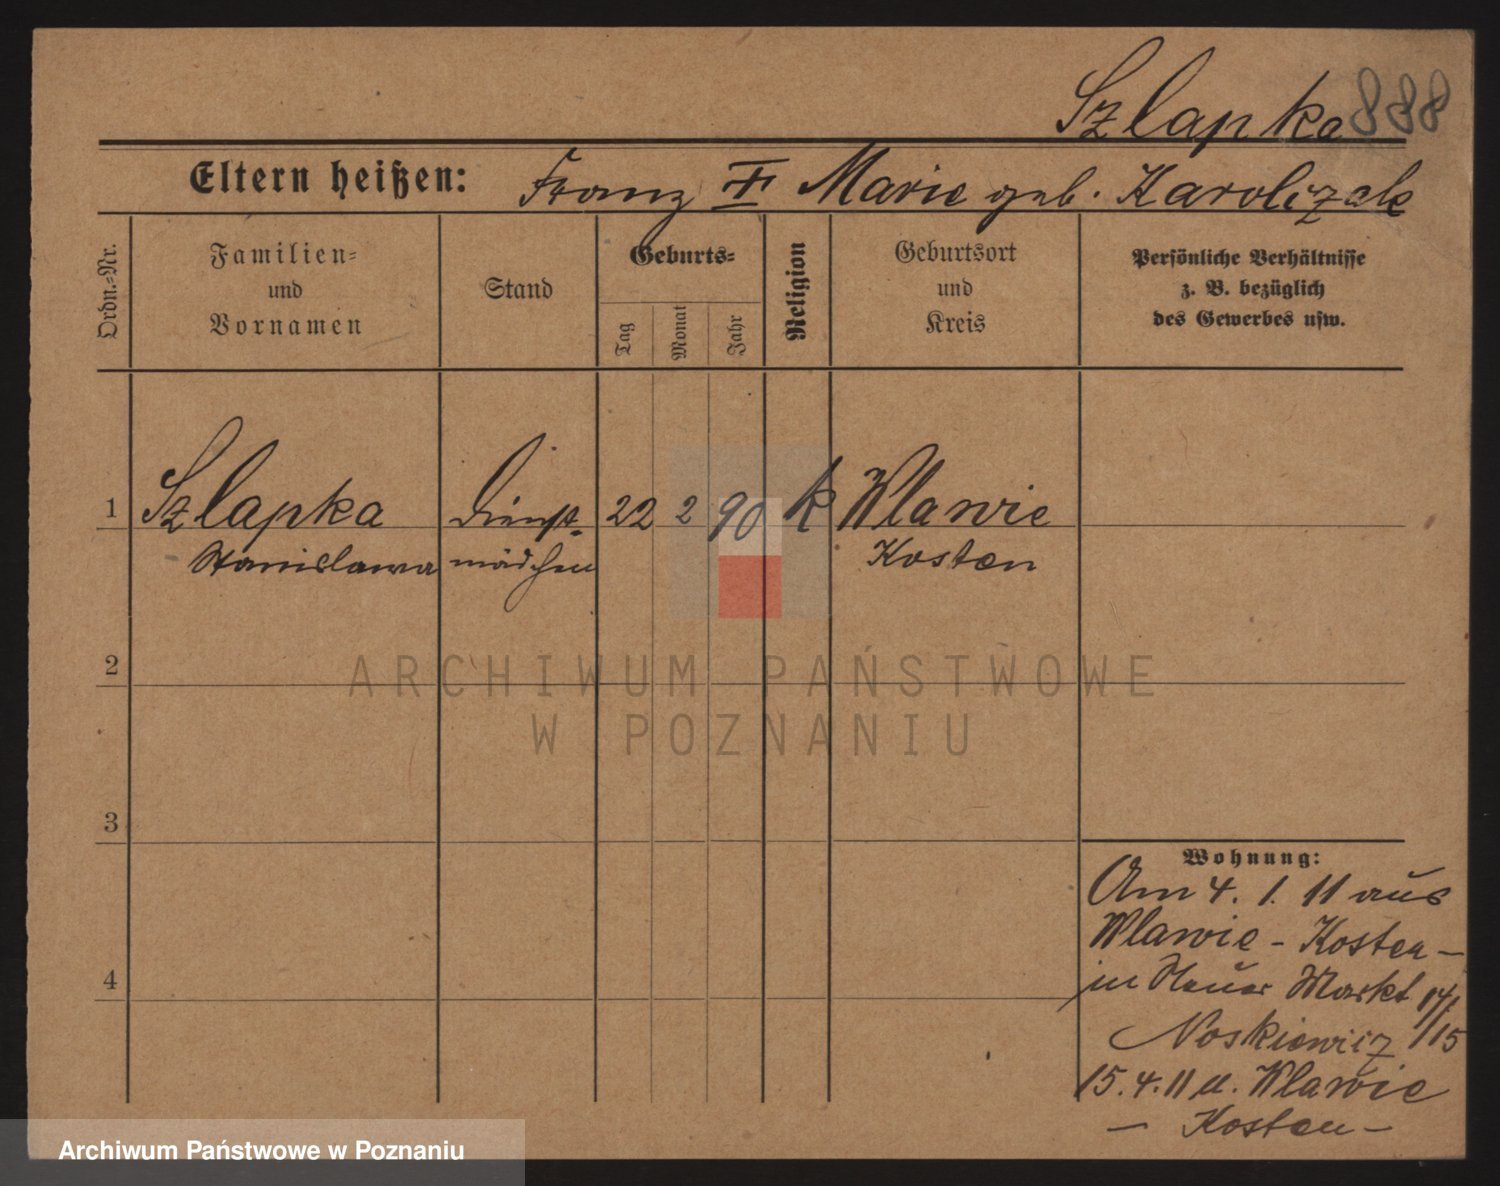 Szlapka 888
Eltern heißen: Franz Marie geb. Karolczak
Ordn.-Nr.
Familien-
und
Vornamen
Stand
Geburts-
Tag
Monat
Jahr
Religion
Geburtsort
und
Kreis
Persönliche Verhältnisse
z. B. bezüglich
des Gewerbes usw.
1 Szlapka Dienst- 22 2 90 k Wlawie
Stanislawa mädchen Kosten
2
3
4
Wohnung:
Am 4. 1. 11 aus
Wlawie - Kosten -
in Neuer Markt
Noskiewicz
15. 4. 11 n. Wlawie
- Kosten -
ARCHIWUM PAŃSTWOWE
W POZNANIU
Archiwum Państwowe w Poznaniu